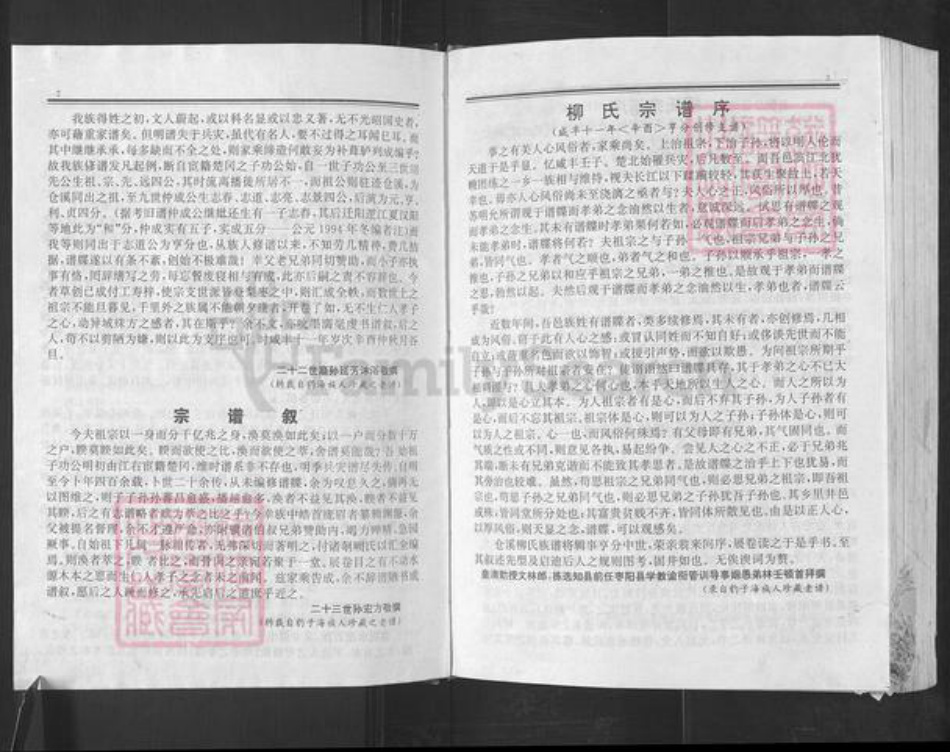 2
我族得姓之初，文人蔚起，或以科名显或以忠义著，无不光昭国史者，
亦可谓重家谱矣。但明谱失于兵灾，虽代有名人，要不过得之耳闻已耳，而
其中继继承承，每多缺而不全之处，则家乘缔造何敢妄为补葺胪列成编乎？
故我族修谱发凡起例，断自宦籍楚冈之子功公始，自一世子功公至三世明
先公生祖、宗、先、远四公，其时流离播徙所居不一，而祖公则驻迹仓溪，为
仓溪同出之祖，至九世仲成公生志春、志道、志亮、志景四公，后演为元、亨、
利、贞四分。
等地此为“和”分，仲成实有五子，实成五分——公元1994年冬编者注)而
我等则同出于志道公为亨分也，从族人修谱以来，不知劳几精神，费几拮
据，谱牒遂以有条不紊，创始不极难哉！幸父老兄弟同切赞助，而小子亦执
事有恪，因辞缮写之劳，每忘餐废寝相与有成，此亦后嗣之责不容辞也。今
者草创已成付工寿梓，使宗支世派皆登梨枣之中，则汇成全帙，而数世上之
祖宗不能旦暮见，千里外之族属不能朝夕继者，开卷了如，无不生仁人孝子
之心，动异域殊方之感者，其在斯乎？余不文，
人，苟不以剪陋为嫌，则以此为支序也可。时咸丰十一年岁次辛酉仲秋月谷
旦。
二十二世裔孙廷芳沐浴敬撰
(转载自豹子海族人珍藏之老谱)
宗谱叙
今夫祖宗以一身而分千亿兆之身，涣莫涣如此矣；以一户而分数十万
之户，睽莫睽如此矣。睽而欲使之比，涣而欲使之萃，舍谱奚能哉？吾始祖
子功公明初由江右宦籍楚冈，维时谱系非不存也，明季兵灾谱尽失传，自明
至今卜年四百余载，卜世二十余传，从未编修谱牒，余为叹息久之，痛再无
以图维之，则子子孙孙蕃昌愈盛，播越愈多，涣者不益见其涣，睽者不益见
其睽，后之有志谱略者欲为萃之比之乎？今幸族中皓首庞眉者纂辑渊源，余
父被提名督理，余不才遵严命，亦附骥诸伯叔兄弟赞助内，竭力殚精，急图
厥事。自始祖下凡属一脉相传者，无弗深切而著明之，付诸剞劂氏以汇全编
焉。则涣者萃之，睽者比之，而骨肉之亲宛若聚于一堂，展卷目之有不动水
源木本之思而生仁人孝子之念者未之前闻。兹家乘告成，余不辞谫陋书成
谱叙，愿后之人踵而修之，承先启后之道庶乎近之。
二十三世孙宏方敬撰
(转载自豹子海族人珍藏之老谱)
3
柳氏宗谱序
(咸丰十一年<辛酉>亨分创修支谱)
事之有关人心风俗者，家乘尚矣。上治祖宗，下治子孙，将以明人伦而
天道于是乎显。忆咸丰壬子，楚北始罹兵灾，
糖团练之一乡一族相与维持，视夫长江以下蹂躏较轻，其获生聚故土，若天
幸也。
苏明允所谓观于谱牒而孝弟之念油然以生者，意诚深远。试思有谱牒之观
而孝弟之念生，其未有谱牒时孝弟果何若如，必观谱牒而后孝弟之念生，倘
未能孝弟时，谱牒将何若？夫祖宗之与子孙一气也，祖宗兄弟与子孙之兄
弟，皆同气也。孝者气之顺也，弟者气之和也。子孙以顺承乎祖宗，一孝之
推也，子孙之兄弟以和应乎祖宗之兄弟，一弟之推也。是故观于孝弟而谱牒
之思，勃然以起。夫然后观于谱牒而孝弟之念油然以生，孝弟也者，谱牒云
乎哉？
近数年间，吾邑族姓有谱牒者，类多续修焉，其未有者，亦创修焉，几相
成为风俗。窃于此有人心之感：或冒认同姓而不知自好；或侈谈先世而不能
自立；或藉重名色而欲以饰智；或援引声势，而欲以欺愚。为问祖宗所期乎
子孙与子孙所对祖宗者安在？徒斤斤然曰谱牒具存，其于孝弟之心不已大
相刺谬与？且夫孝弟之心何心也，本乎天地所以生人之心。而人之所以为
人，即以是心立其本。为人祖宗者有是心，而后不弃其子孙，为人子孙者有
是心，而后不忘其祖宗。祖宗体是心，则可以为人之子孙；子孙体是心，则可
以为人之祖宗。心一也，而风俗何殊焉？有父母即有兄弟，其气固同也。而
气质之性或不同，则意见各执，易起纷争。尝见人之心之不正，必于兄弟北
其端，断未有兄弟克谐而不能致其孝思者。是故谱牒之治乎上下也犹易，而
其旁治也较难。虽然，苟思祖宗之兄弟同气也，则必思兄弟之祖宗，即吾祖
宗也，苟思子孙之兄弟同气也，则必思兄弟之子孙犹吾子孙也。其乡里井邑
或殊，皆同堂所分处也；其富贵贫贱不齐，皆同体所散见也。由是以正人心，
以厚风俗，则天显之念，谱牒，可以观感矣。
仓溪柳氏族谱将辑事亨分中世，荣亲翁来问序，展卷读之于是乎书。至
其叙述先型及启迪后人之规则图考，固井井如也。无俟谀词为赞。
皇清敕授文林郎、拣选知县前任枣阳县学教谕衔管训导事姻愚弟林壬顿首拜撰
(录自豹子海族人珍藏老谱)